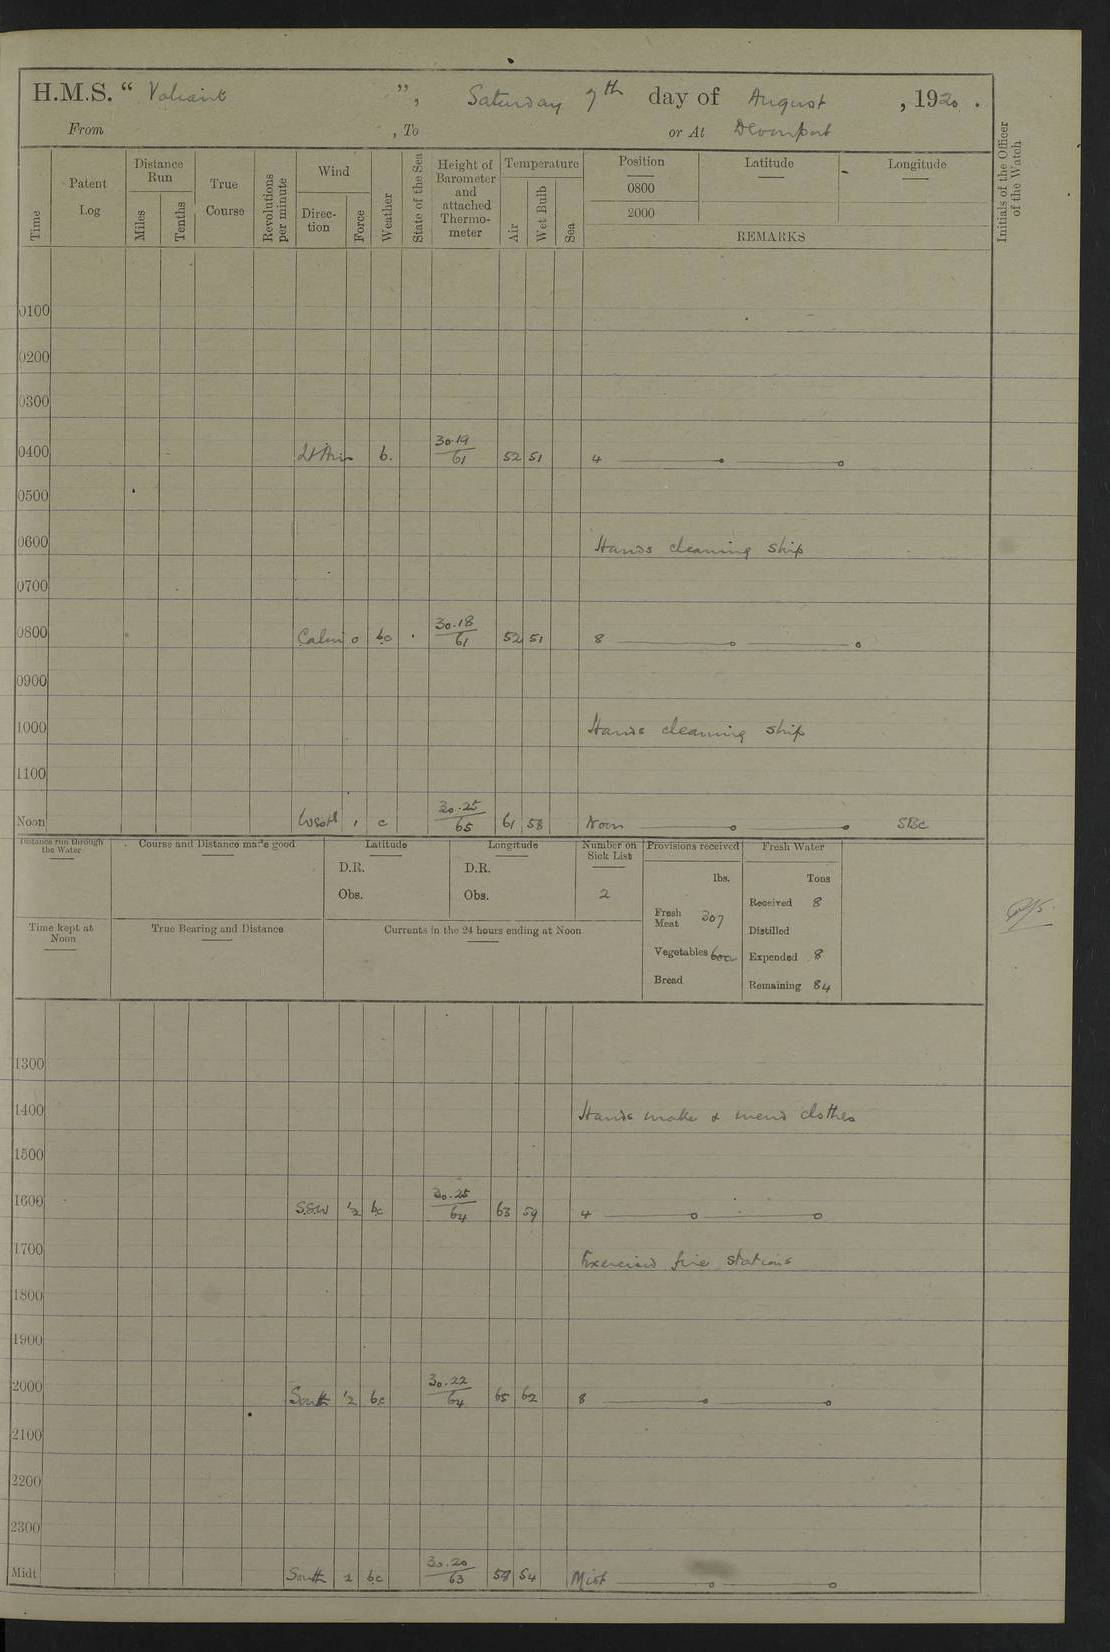 H.M.S. “ Valiant ”, Saturday 7th day of August , 1920 .
From , To or At Devonport
Time
Patent Log
Distance Run
Miles
Tenths
True Course
Revolutions per minute
Wind
Direc- tion
Force
Weather
State of the Sea
Height of Barometer and attached Thermo- meter
Temperature
Air
Wet Bulb
Sea
Position Latitude Longitude
0800
2000
REMARKS
Initials of the Officer of the Watch
0100
0200
0300
0400 Lt Air b. 30.19/61 52 51 4
0500
0600 Hands cleaning ship
0700
0800 Calm 0 bc 30.18/61 52 51 8
0900
1000 Hands cleaning ship
1100
Noon 1 c 30.25/65 61 58 Noon
Distance run through the Water
Course and Distance made good
Latitude
D.R.
Obs.
Longitude
D.R.
Obs.
Number on Sick List
2
Provisions received
lbs.
Fresh Meat 307
Vegetables 600
Bread
Fresh Water
Tons
Received 8
Distilled
Expended 8
Remaining 84
Time kept at Noon
True Bearing and Distance
Currents in the 24 hours ending at Noon
1300
1400 Hands make & mend clothes
1500
1600 S.S.W ½ bc 30.25/64 63 59 4
1700 Exercised fire stations
1800
1900
2000 South ½ bc 30.22/64 65 62 8
2100
2200
2300
Midt South 2 bc 30.20/63 54 Midt